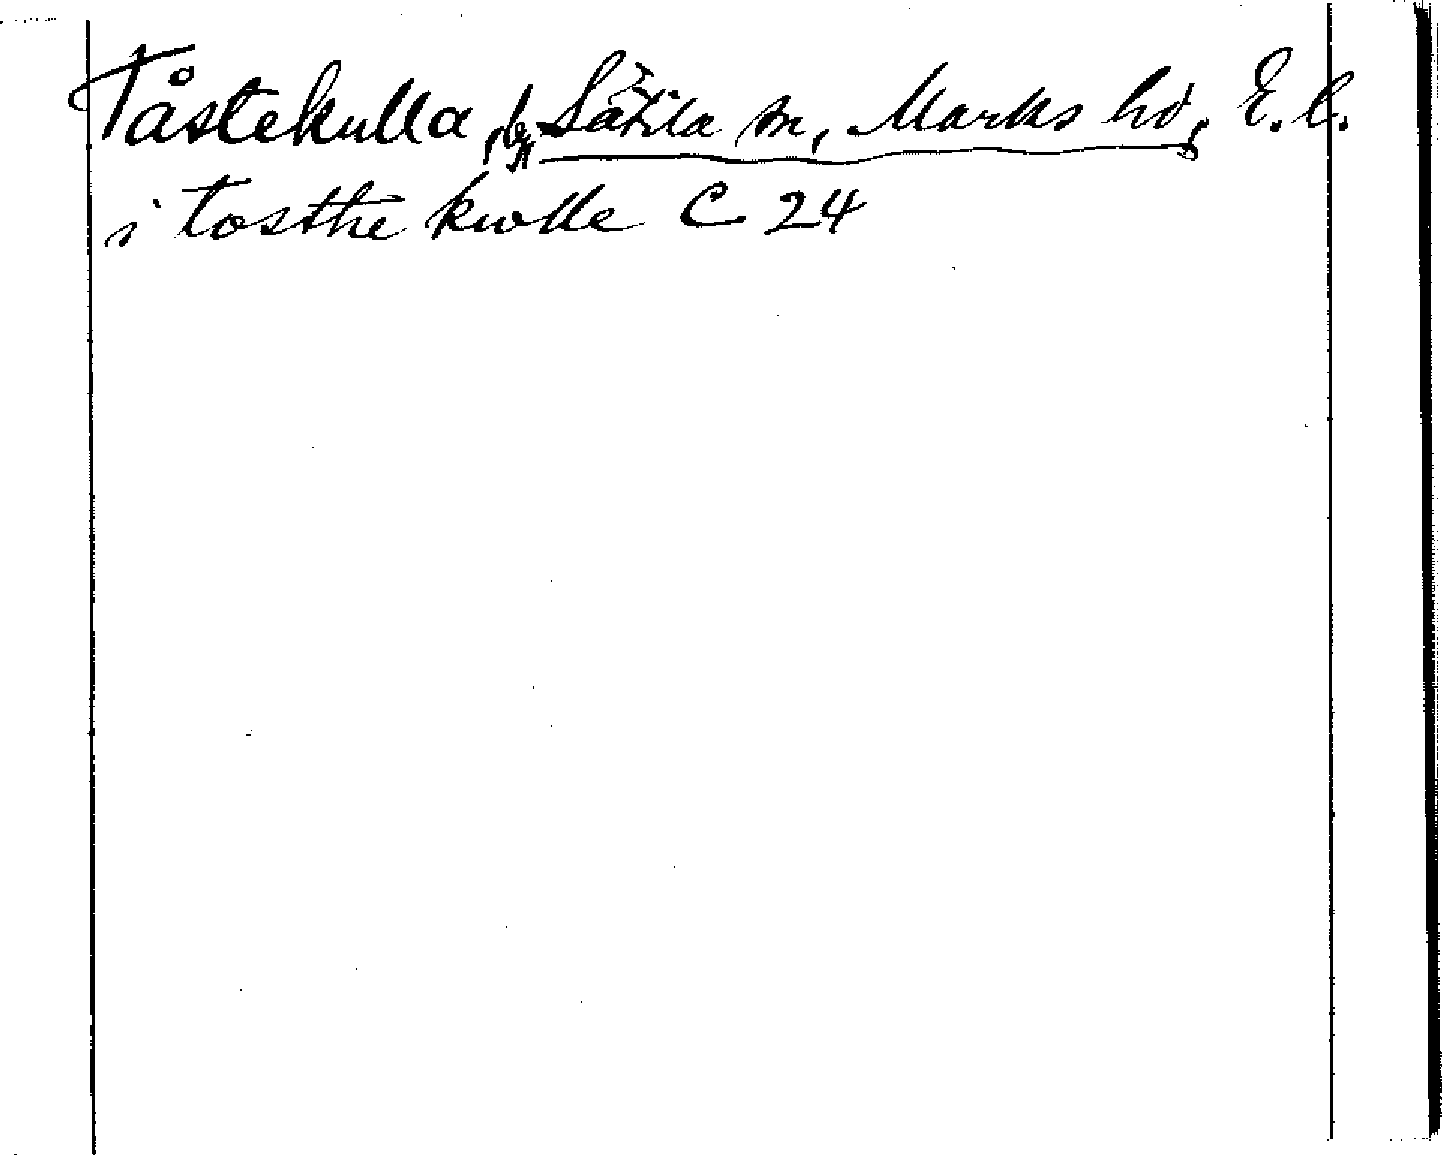 Tåstekulla, by, Sätila sn, Marks hd, E.l.
i tosthe kwlle C 24